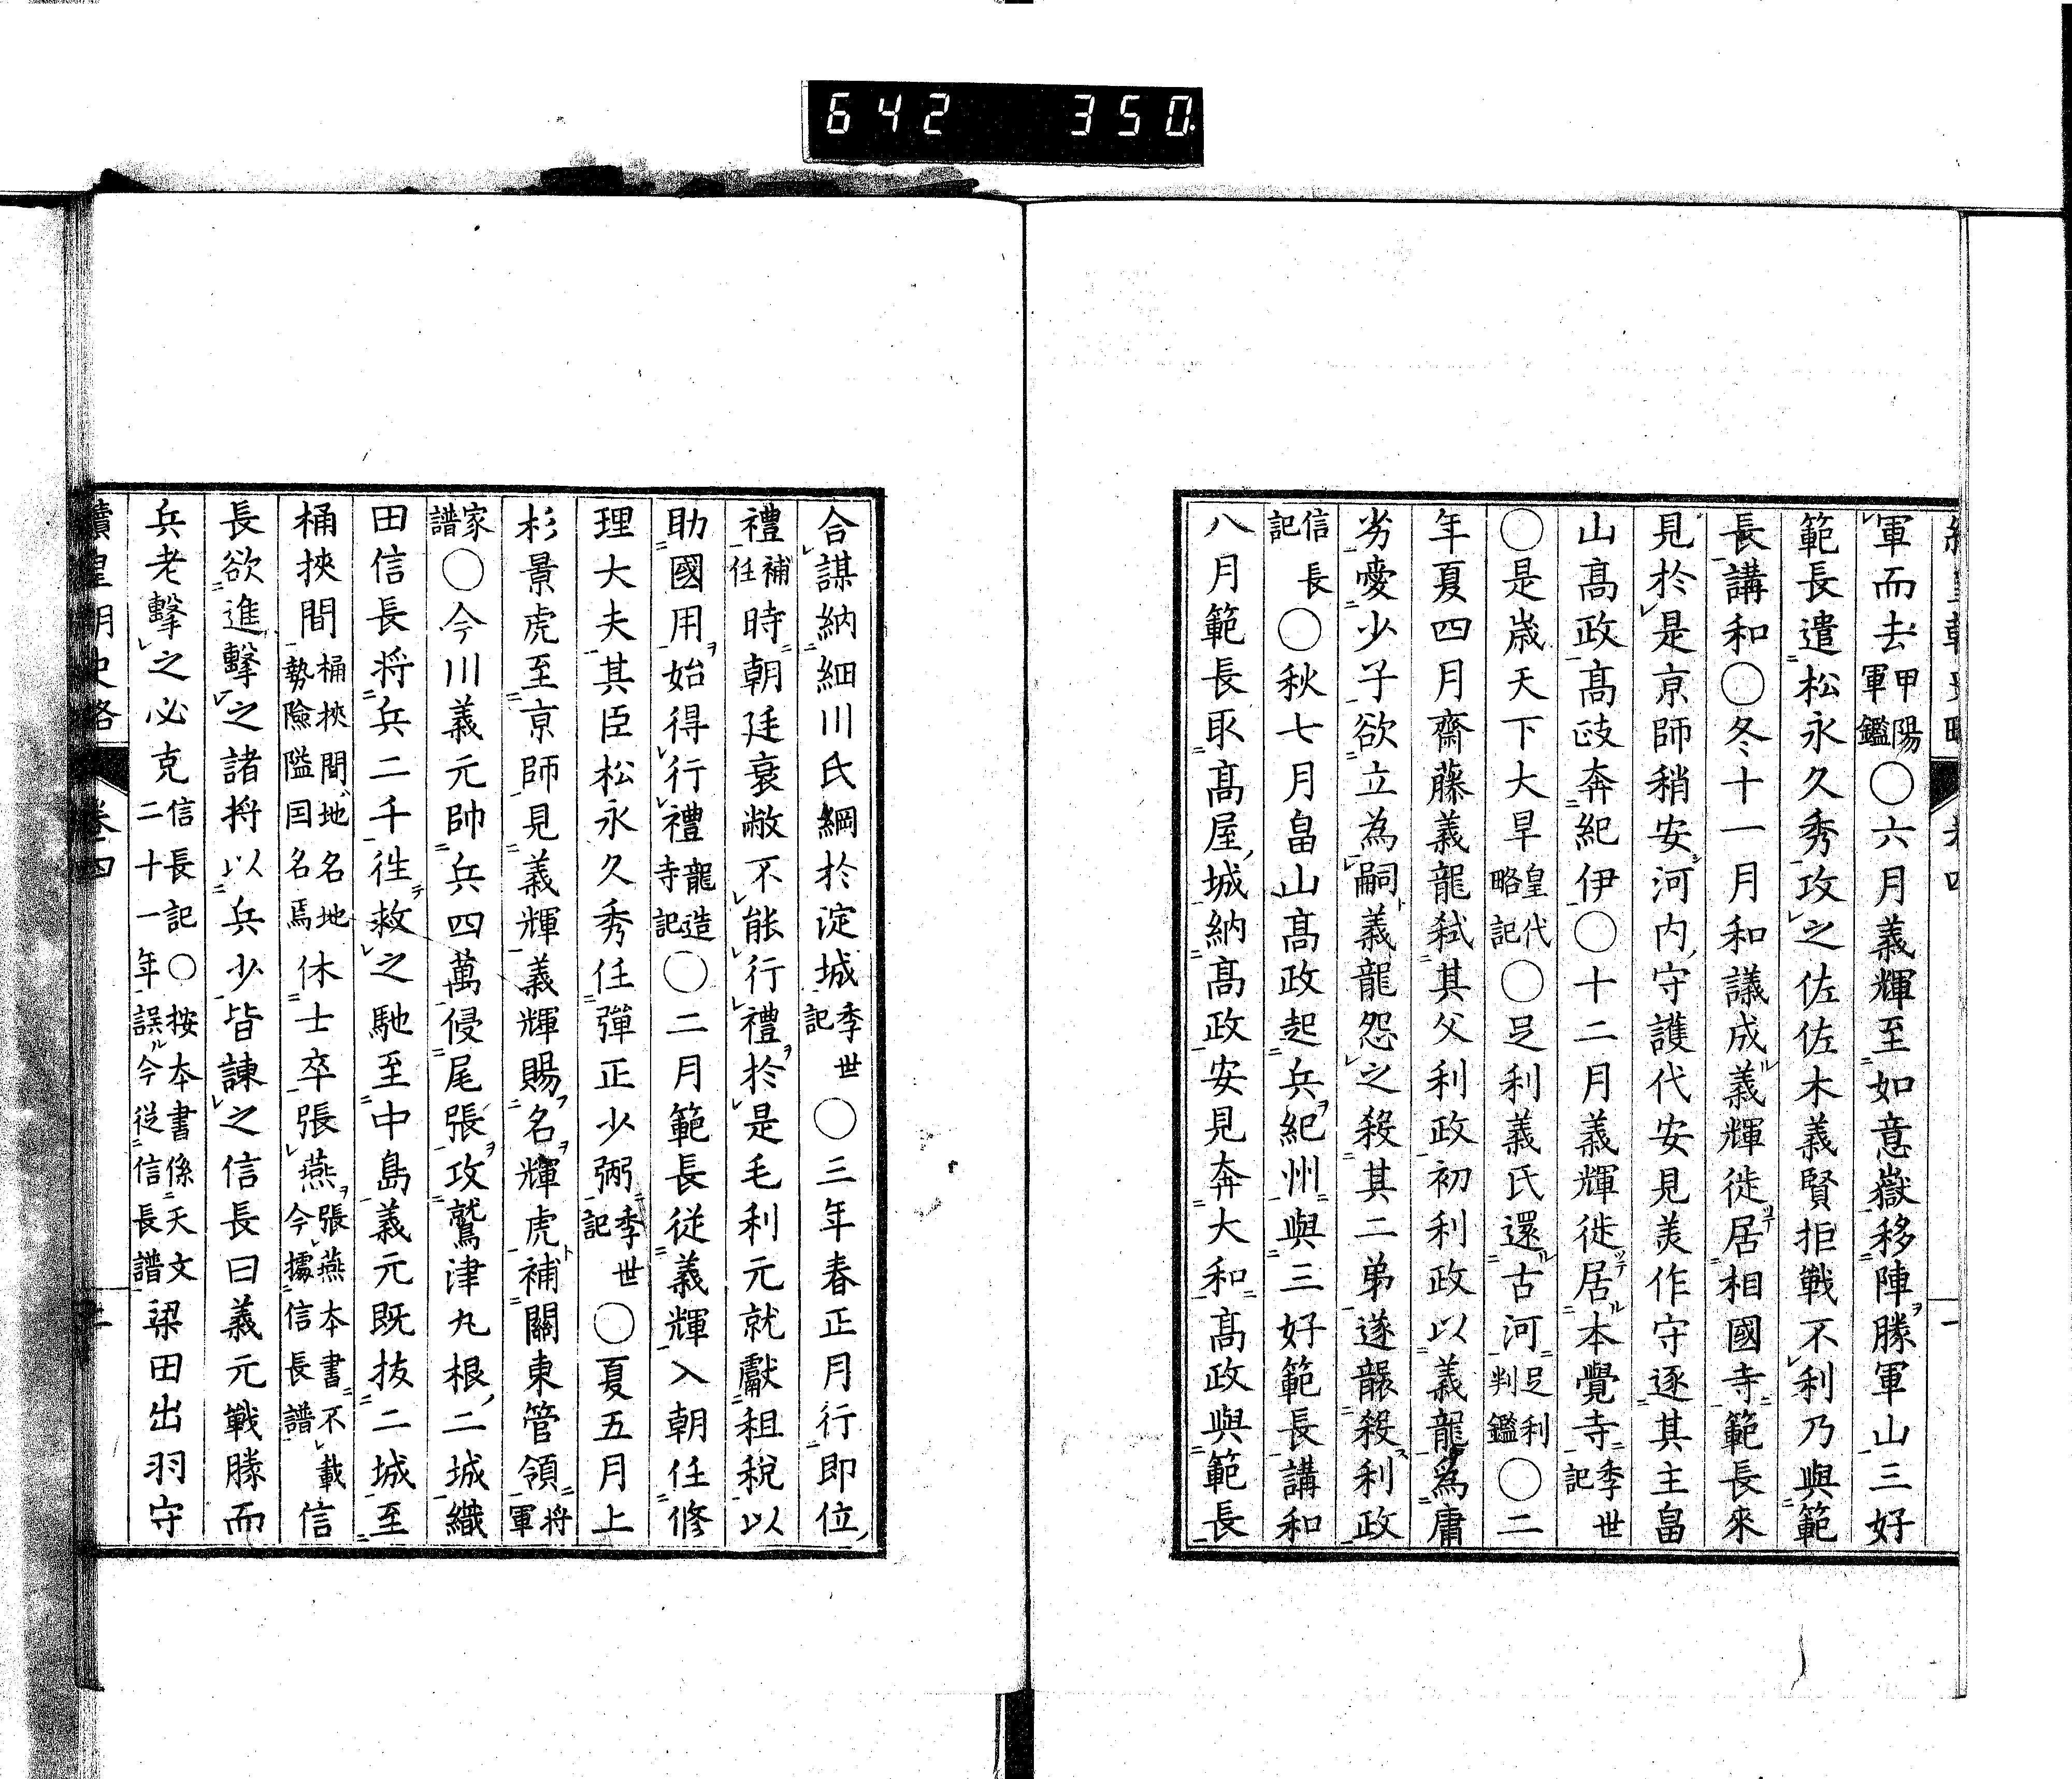 642 350
軍而去甲陽軍鑑○六月義輝至如意嶽移陣勝軍山三好
範長遣松永久秀攻之佐佐木義賢拒戰不利乃與範
長講和○冬十一月和議成義輝徙居相國寺範長來
見於是京師稍安河内守護代安見美作守逐其主畠
山高政高政奔紀伊○十二月義輝徙居本覺寺季世記
○是歳天下大旱皇代略記○足利義氏還古河足利判鑑○二
年夏四月齋藤義龍弑其父利政初利政以義龍爲庸
劣愛少子欲立為嗣義龍怨之殺其二弟遂襲殺利政
信長記○秋七月畠山高政起兵紀州與三好範長講和
八月範長取高屋城納高政安見奔大和高政與範長
合謀納細川氏綱於淀城季世記○三年春正月行即位
禮補任時朝廷衰敝不能行禮於是毛利元就獻租税以
助國用始得行禮龍造寺記○二月範長從義輝入朝任修
理大夫其臣松永久秀任彈正少弼季世記○夏五月上
杉景虎至京師見義輝義輝賜名輝虎補關東管領将軍
家譜○今川義元帥兵四萬侵尾張攻鷲津丸根二城織
田信長将兵二千徃救之馳至中島義元既抜二城至
桶挾間桶挾間地名地勢險隘因名焉休士卒張燕張燕本書不載今據信長譜信
長欲進擊之諸将以兵少皆諫之信長曰義元戰勝而
兵老擊之必克信長記○按本書係天文二十一年誤今従信長譜梁田出羽守
續皇朝史略 卷四